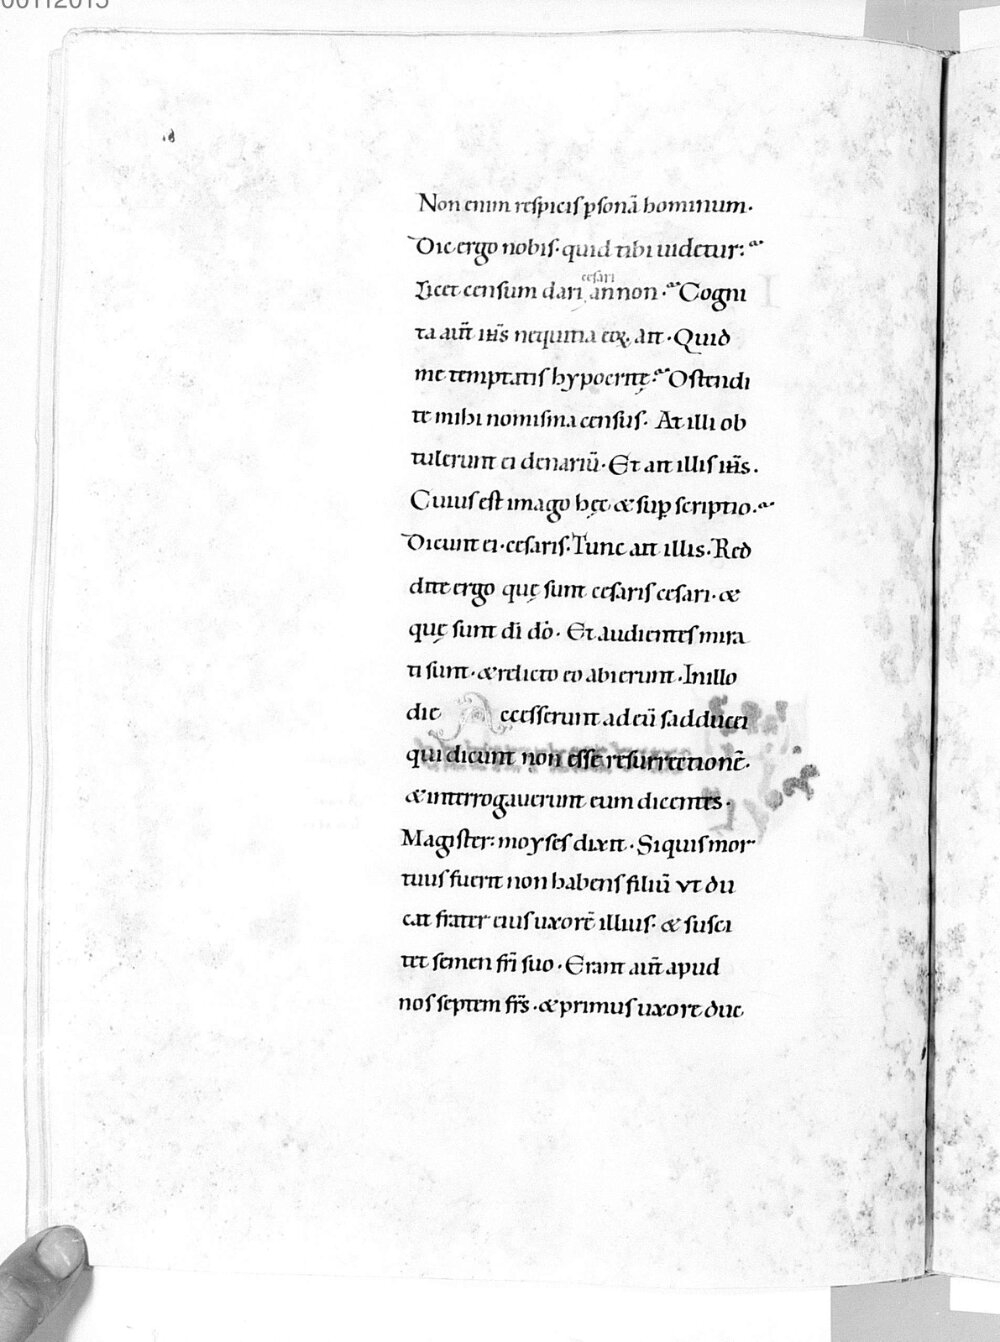 00112015
Non enim respicis ꝑsonā hominum.
Dic ergo nobis. quid tibi uidetur:
cesari
Licet censum dari annon. Cogni
ta aut̄ ih̄s nequitia eoꝝ, ait. Quid
me temptatis hypocritę: Ostendi
te mihi nomisma census. At illi ob
tulerunt ei denariū. Et ait illis ih̄s.
Cuius est imago hęc & suꝑ scriptio.
Dicunt ei. cesaris. Tunc ait illis. Red
dite ergo quę sunt cesaris cesari. &
quę sunt dī dō. Et audientes mira
ti sunt. & relicto eo abierunt. In illo
die Accesserunt ad eū sadducei
qui dicunt non esse resurrectionē.
& interrogauerunt eum dicentes.
Magister: moyses dixit. Siquis mor
tuus fuerit non habens filiū vt du
cat frater eius uxorē illius. & susci
tet semen frī suo. Erant aut̄ apud
nos septem frs̄. & primus uxore duc